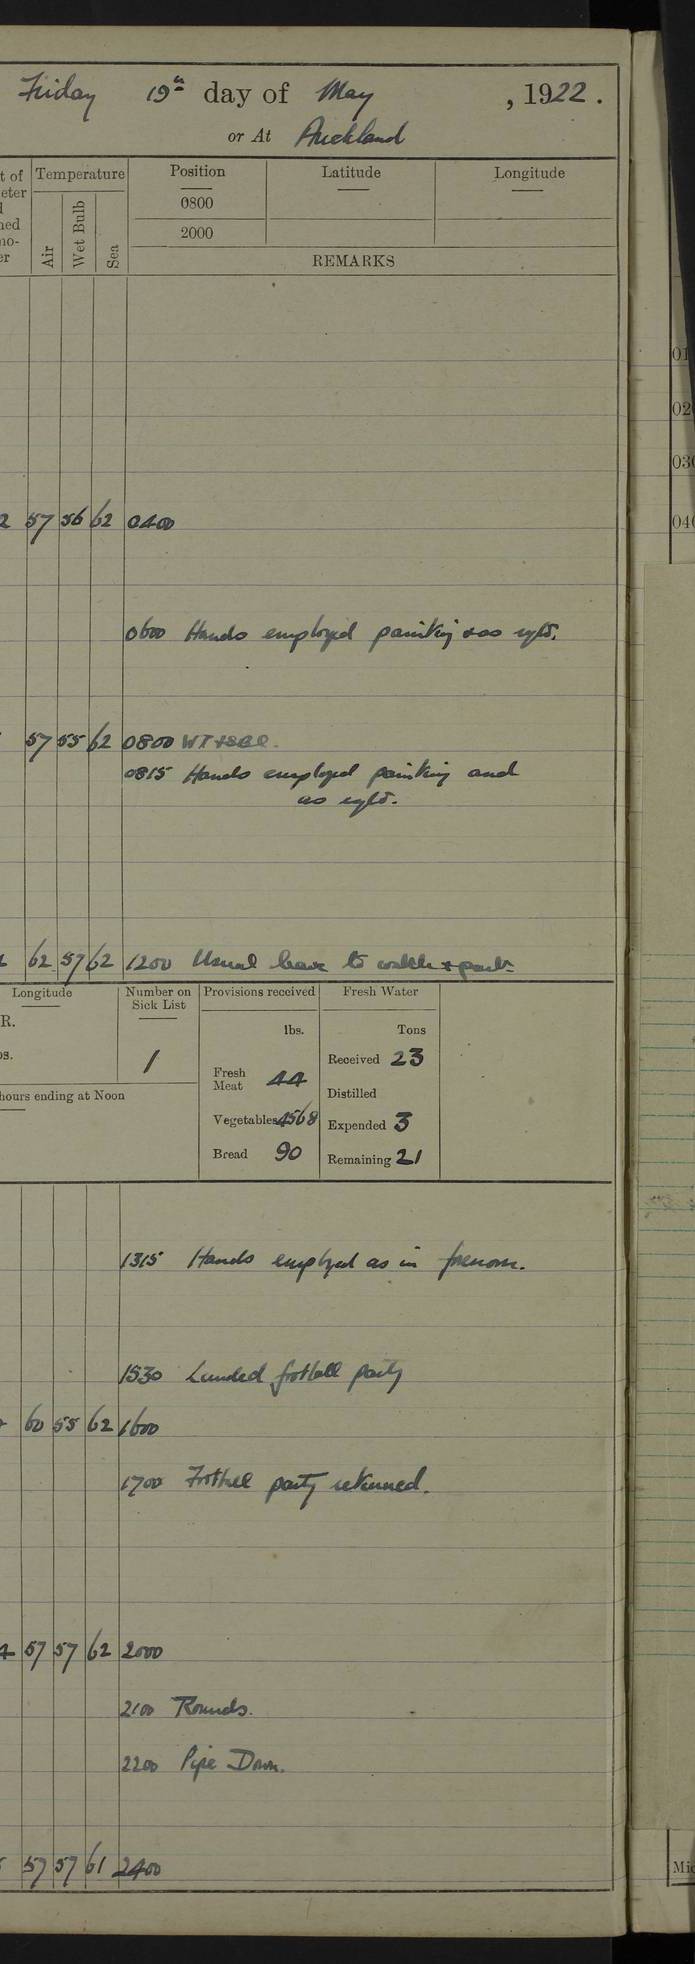 Friday 19th day of May , 1922.
or At Auckland
t of
eter
ned
mo-
er
Temperature
Air
Wet Bulb
Sea
Position
Latitude
Longitude
0800
2000
REMARKS
2 57 56 62 0400
0600 Hands employed painting & as reqd.
57 55 62 0800
0815 Hands employed painting and
as reqd.
62 57 62 1200 Usual leave to watch & part
Longitude
R.
os.
hours ending at Noon
Number on
Sick List
1
Provisions received
lbs.
Fresh
Meat 44
Vegetables 4568
Bread 90
Fresh Water
Tons
Received 23
Distilled
Expended 3
Remaining 21
1315 Hands employed as in forenoon.
1530 Landed football party
60 55 62 1600
1700 Football party returned.
4 57 57 62 2000
2100 Rounds.
2200 Pipe Down.
57 57 61 2400
01
02
030
040
Mic